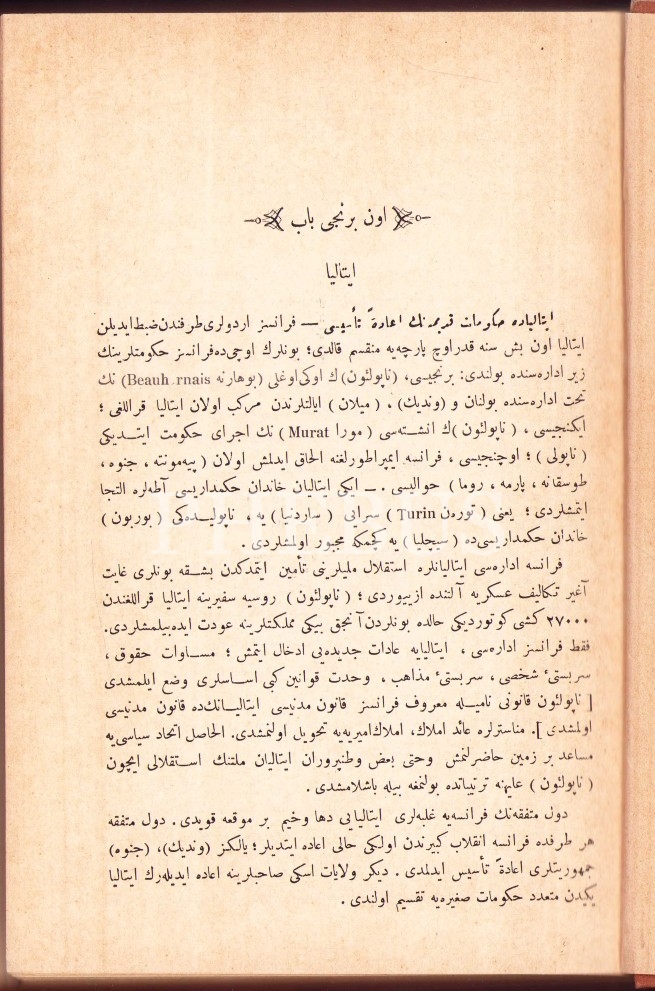 اون برنجی باب
ایتالیا
ایتالیاده حکومات قدیمه‌نك اعادةً تأسیسی — فرانسز اردولری طرفندن ضبط ایدیلن
ایتالیا اون بش سنه قدر اوچ پارچه‌یه منقسم قالدی؛ بونلرك اوچی‌ده فرانسز حکومتلرینك
زیر اداره‌سنده بولندی: برنجیسی، (ناپولئون)ك اوکی اوغلی (بوهارنه Beauh rnais) نك
تحت اداره‌سنده بولنان و (وندیك) ، (میلان) ایالتلرندن مرکب اولان ایتالیا قراللغی ؛
ایکنجیسی ، (ناپولئون)ك انشته‌سی (مورا Murat) نك اجرای حکومت ایتدیکی
(ناپولی) ؛ اوچنجیسی ، فرانسه ایمپراطورلغنه الحاق ایدلمش اولان (پیه‌مونته ، جنوه ،
طوسقانه ، پارمه ، روما) حوالیسی . — ایکی ایتالیان خاندان حکمداریسی آطه‌لره التجا
ایتمشلردی ؛ یعنی (تورەن Turin) سرایی (ساردنیا) یه ، ناپولیده‌کی (بوربون)
خاندان حکمداریسی‌ده (سیچلیا) یه کچمکه مجبور اولمشلردی .
فرانسه اداره‌سی ایتالیانلره استقلال ملیلرینی تأمین ایتمدکدن بشقه بونلری غایت
آغیر تکالیف عسکریه آلتنده ازییوردی ؛ (ناپولئون) روسیه سفرینه ایتالیا قراللغندن
۲۷۰۰۰ کشی کوتوردیکی حالده بونلردن آنجق بیکی مملکتلرینه عودت ایده‌بیلمشلردی.
فقط فرانسز اداره‌سی ، ایتالیایه عادات جدیده‌یی ادخال ایتمش ؛ مساوات حقوق ،
سربستیٔ شخصی ، سربستیٔ مذاهب ، وحدت قوانین کبی اساسلری وضع ایلمشدی
[ ناپولئون قانونی نامیله معروف فرانسز قانون مدنیسی ایتالیانك‌ده قانون مدنیسی
اولمشدی ]. مناسترلره عائد املاك، املاك امیریه‌یه تحویل اولنمشدی. الحاصل اتحاد سیاسی‌یه
مساعد بر زمین حاضرلنمش وحتی بعض وطنپروران ایتالیان ملتنك استقلالی ایچون
(ناپولئون) علیهنه ترتیباتده بولنمغه بیله باشلامشدی .
دول متفقه‌نك فرانسه‌یه غلبه‌لری ایتالیایی دها وخیم بر موقعه قویدی . دول متفقه
هر طرفده فرانسه انقلاب کبیرندن اولکی حالی اعاده ایتدیلر ؛ یالکز (وندیك)، (جنوه)
جمهوریتلری اعادةً تأسیس ایدلمدی . دیکر ولایات اسکی صاحبلرینه اعاده ایدیله‌رك ایتالیا
یکیدن متعدد حکومات صغیره‌یه تقسیم اولندی .